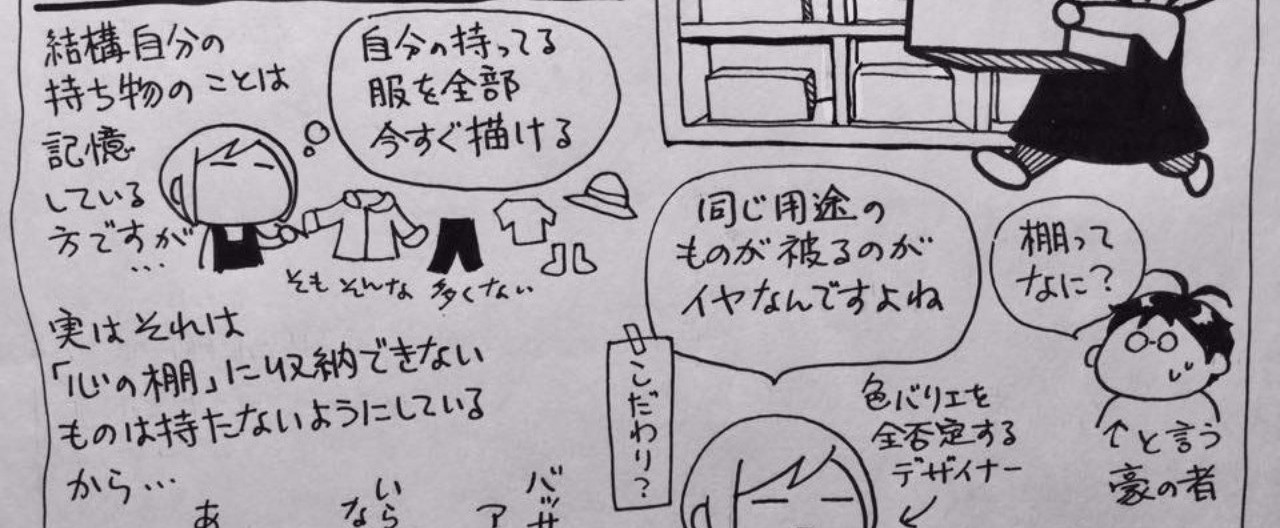 結構自分の
持ち物のことは
記憶
している
方ですが
…
自分の持ってる
服を全部
今すぐ描ける
そもそんな 多くない
実はそれは
「心の棚」に収納できない
ものは持たないようにしている
から…
同じ用途の
ものが被るのが
イヤなんですよね
棚って
なに?
↑と言う
豪の者
こだわり?
色バリエを
全否定する
デザイナー
あ
いら
なら
バッサ
ア